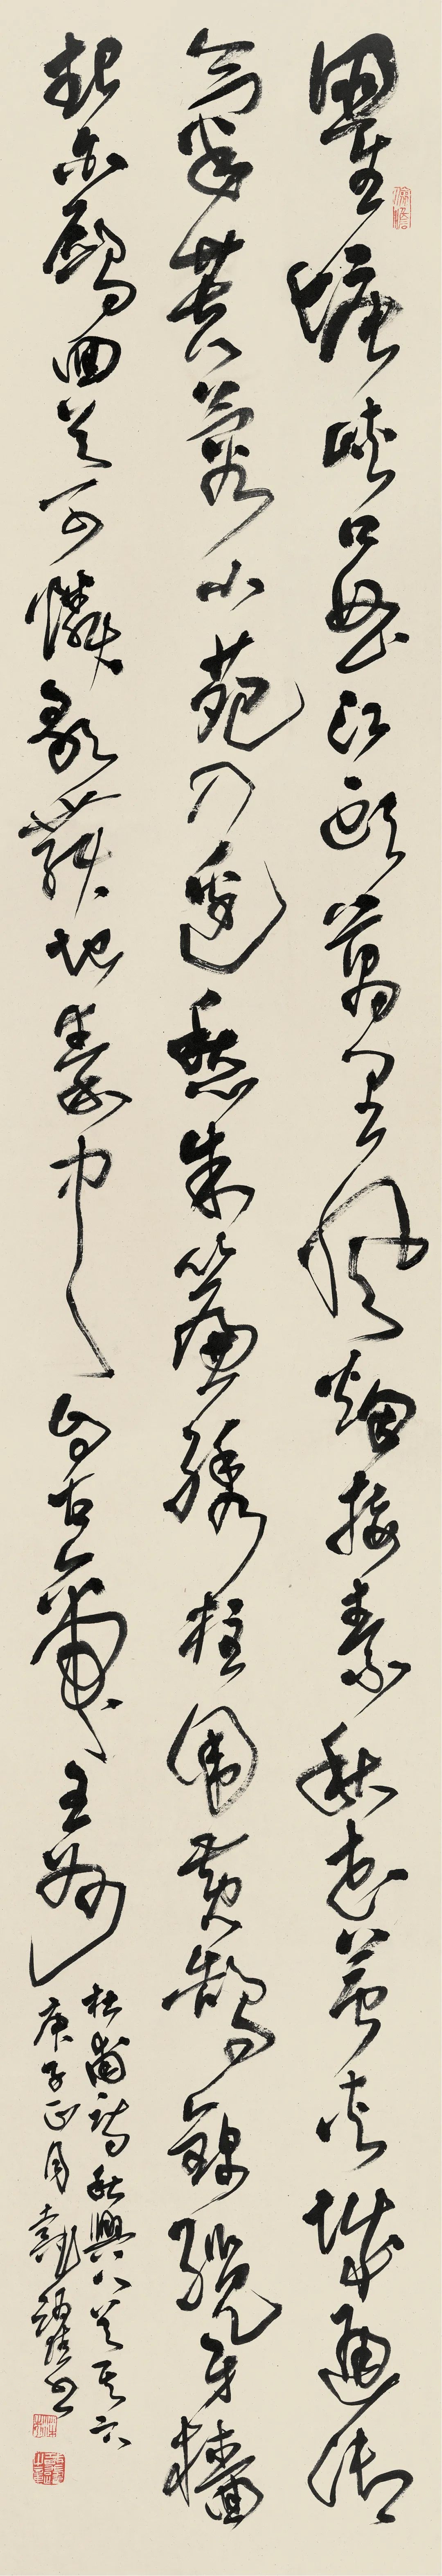 瞿塘峽口曲江頭萬里風烟接素秋花萼夾城通御
氣芙蓉小苑入邊愁朱簾繡柱圍黃鵠錦纜牙檣
起白鷗回首可憐歌舞地秦中自古帝王州
杜甫詩秋興八首其六
庚子正月